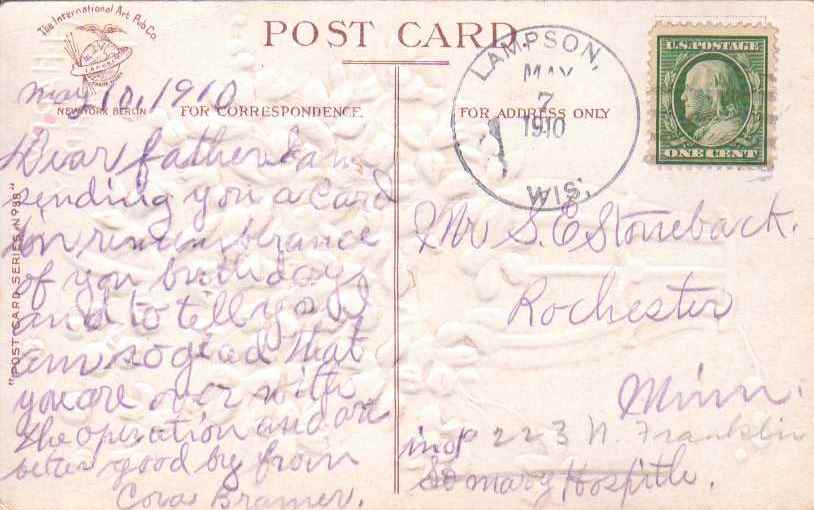 The International Art Pub Co.
NEW YORK BERLIN
POST CARD.
FOR CORRESPONDENCE.
FOR ADDRESS ONLY
"POST CARD SERIES N° 938"
LAMPSON,
MAY
7
1910
WIS.
U.S. POSTAGE
ONE CENT
may 10, 1910
Dear father I am
sending you a Card
on rememberance
of you birthday
and to tell you I
am so glad that
you are over with
the operation and are
better good by from
Cora Bramer.
Mr S. E Stoneback.
Rochester
Minn.
223 N. Franklin
St mary Hospitle.